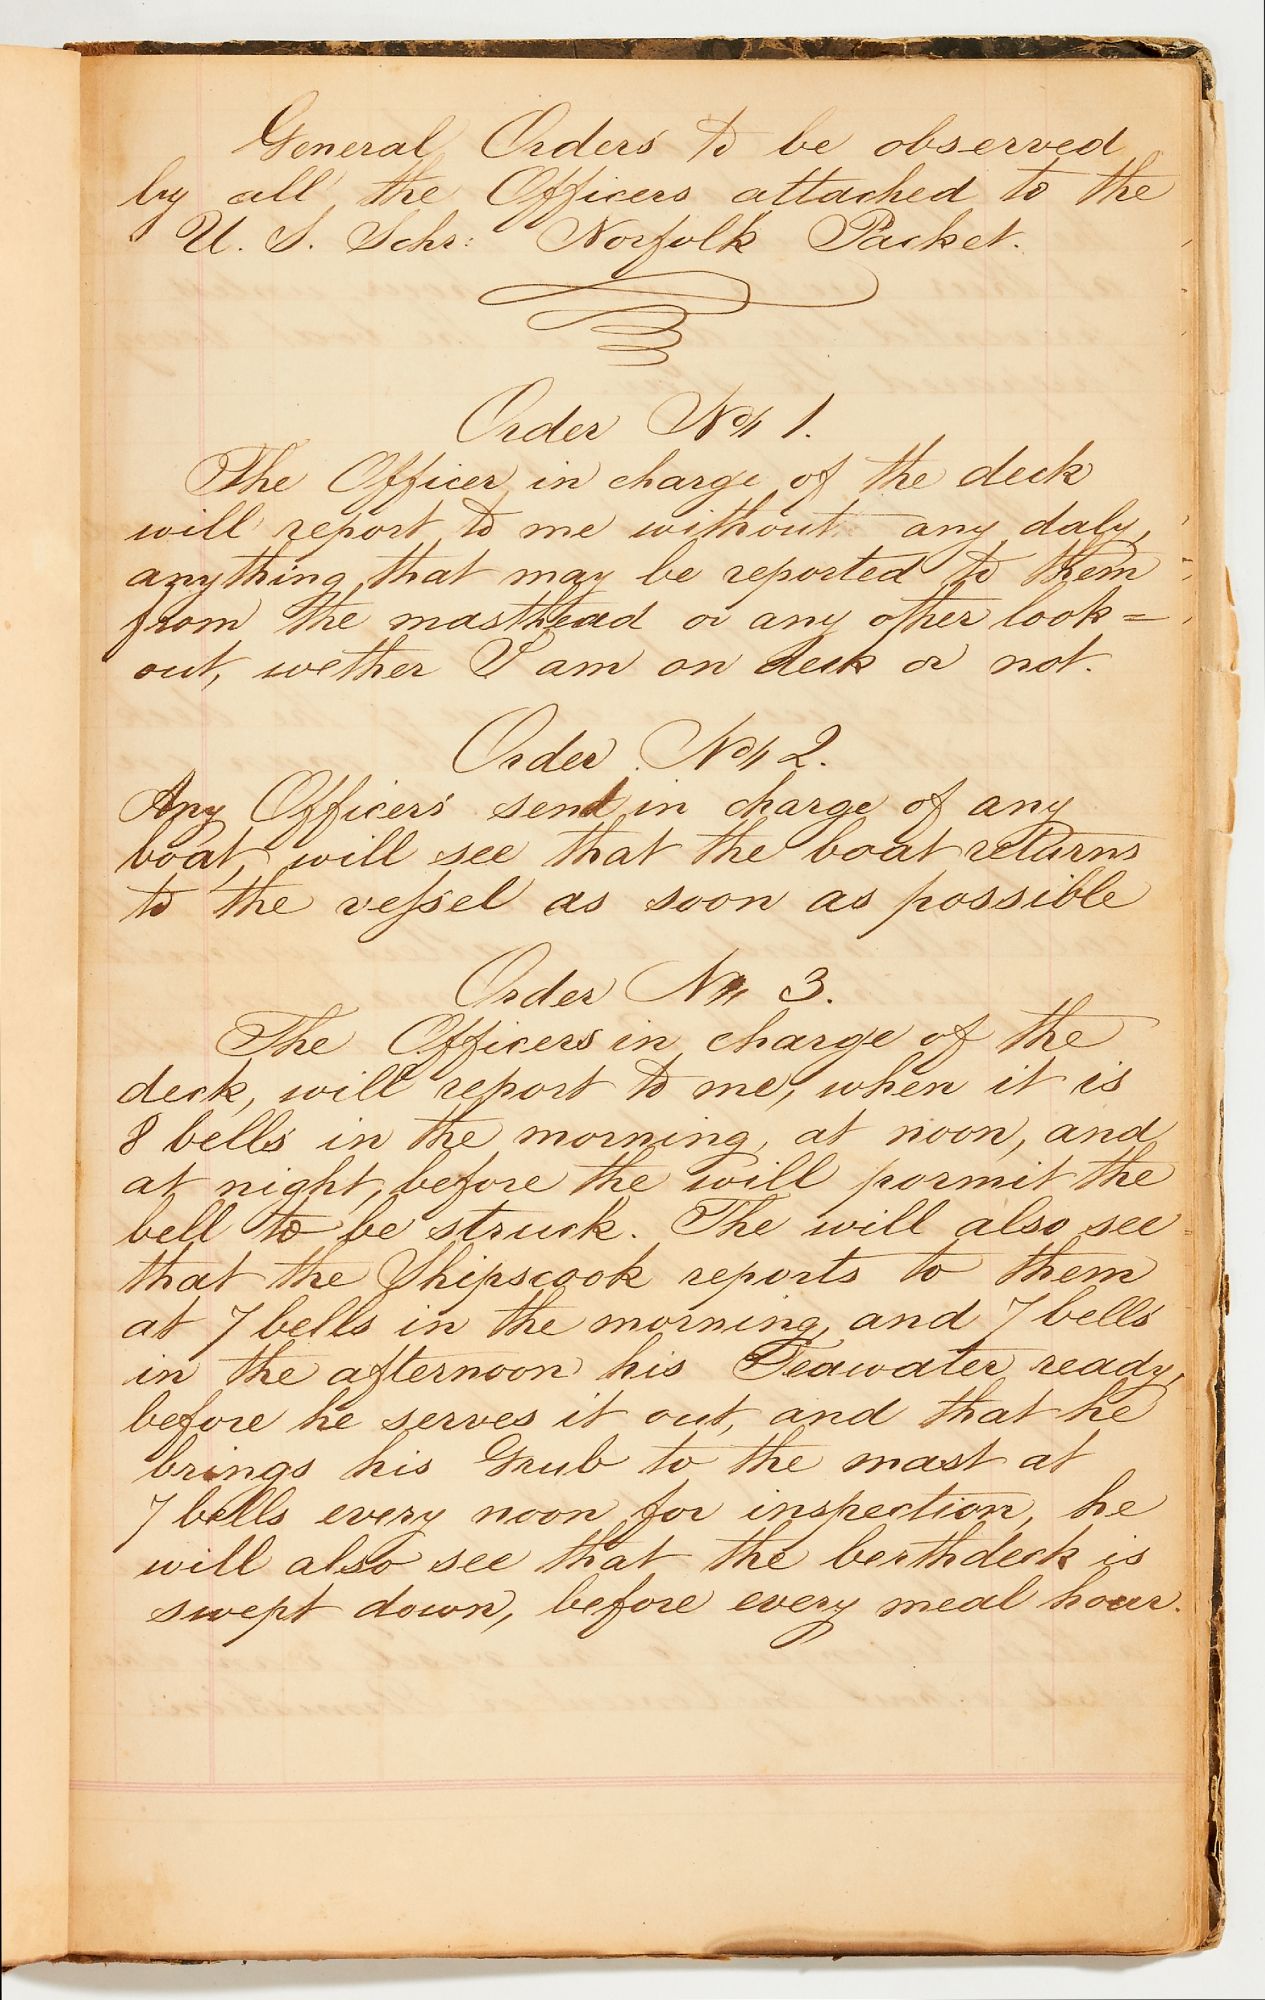 General Orders to be observed
by all the Officers attached to the
U. S. Schr: Norfolk Packet.
Order No 1.
The Officer in charge of the deck
will report to me without any daly,
anything that may be reported to them
from the masthead or any other look=
out, wether I am on deck or not.
Order No 2.
Any Officers sent in charge of any
boat, will see that the boat returns
to the vessel as soon as possible
Order No 3.
The Officers in charge of the
deck, will report to me, when it is
8 bells in the morning, at noon, and
at night, before the will permit the
bell to be struck. The will also see
that the Shipscook reports to them
at 7 bells in the morning, and 7 bells
in the afternoon his Teawater ready,
before he serves it out, and that he
brings his Grub to the mast at
7 bells every noon for inspection, he
will also see that the berthdeck is
swept down, before every meal hour.